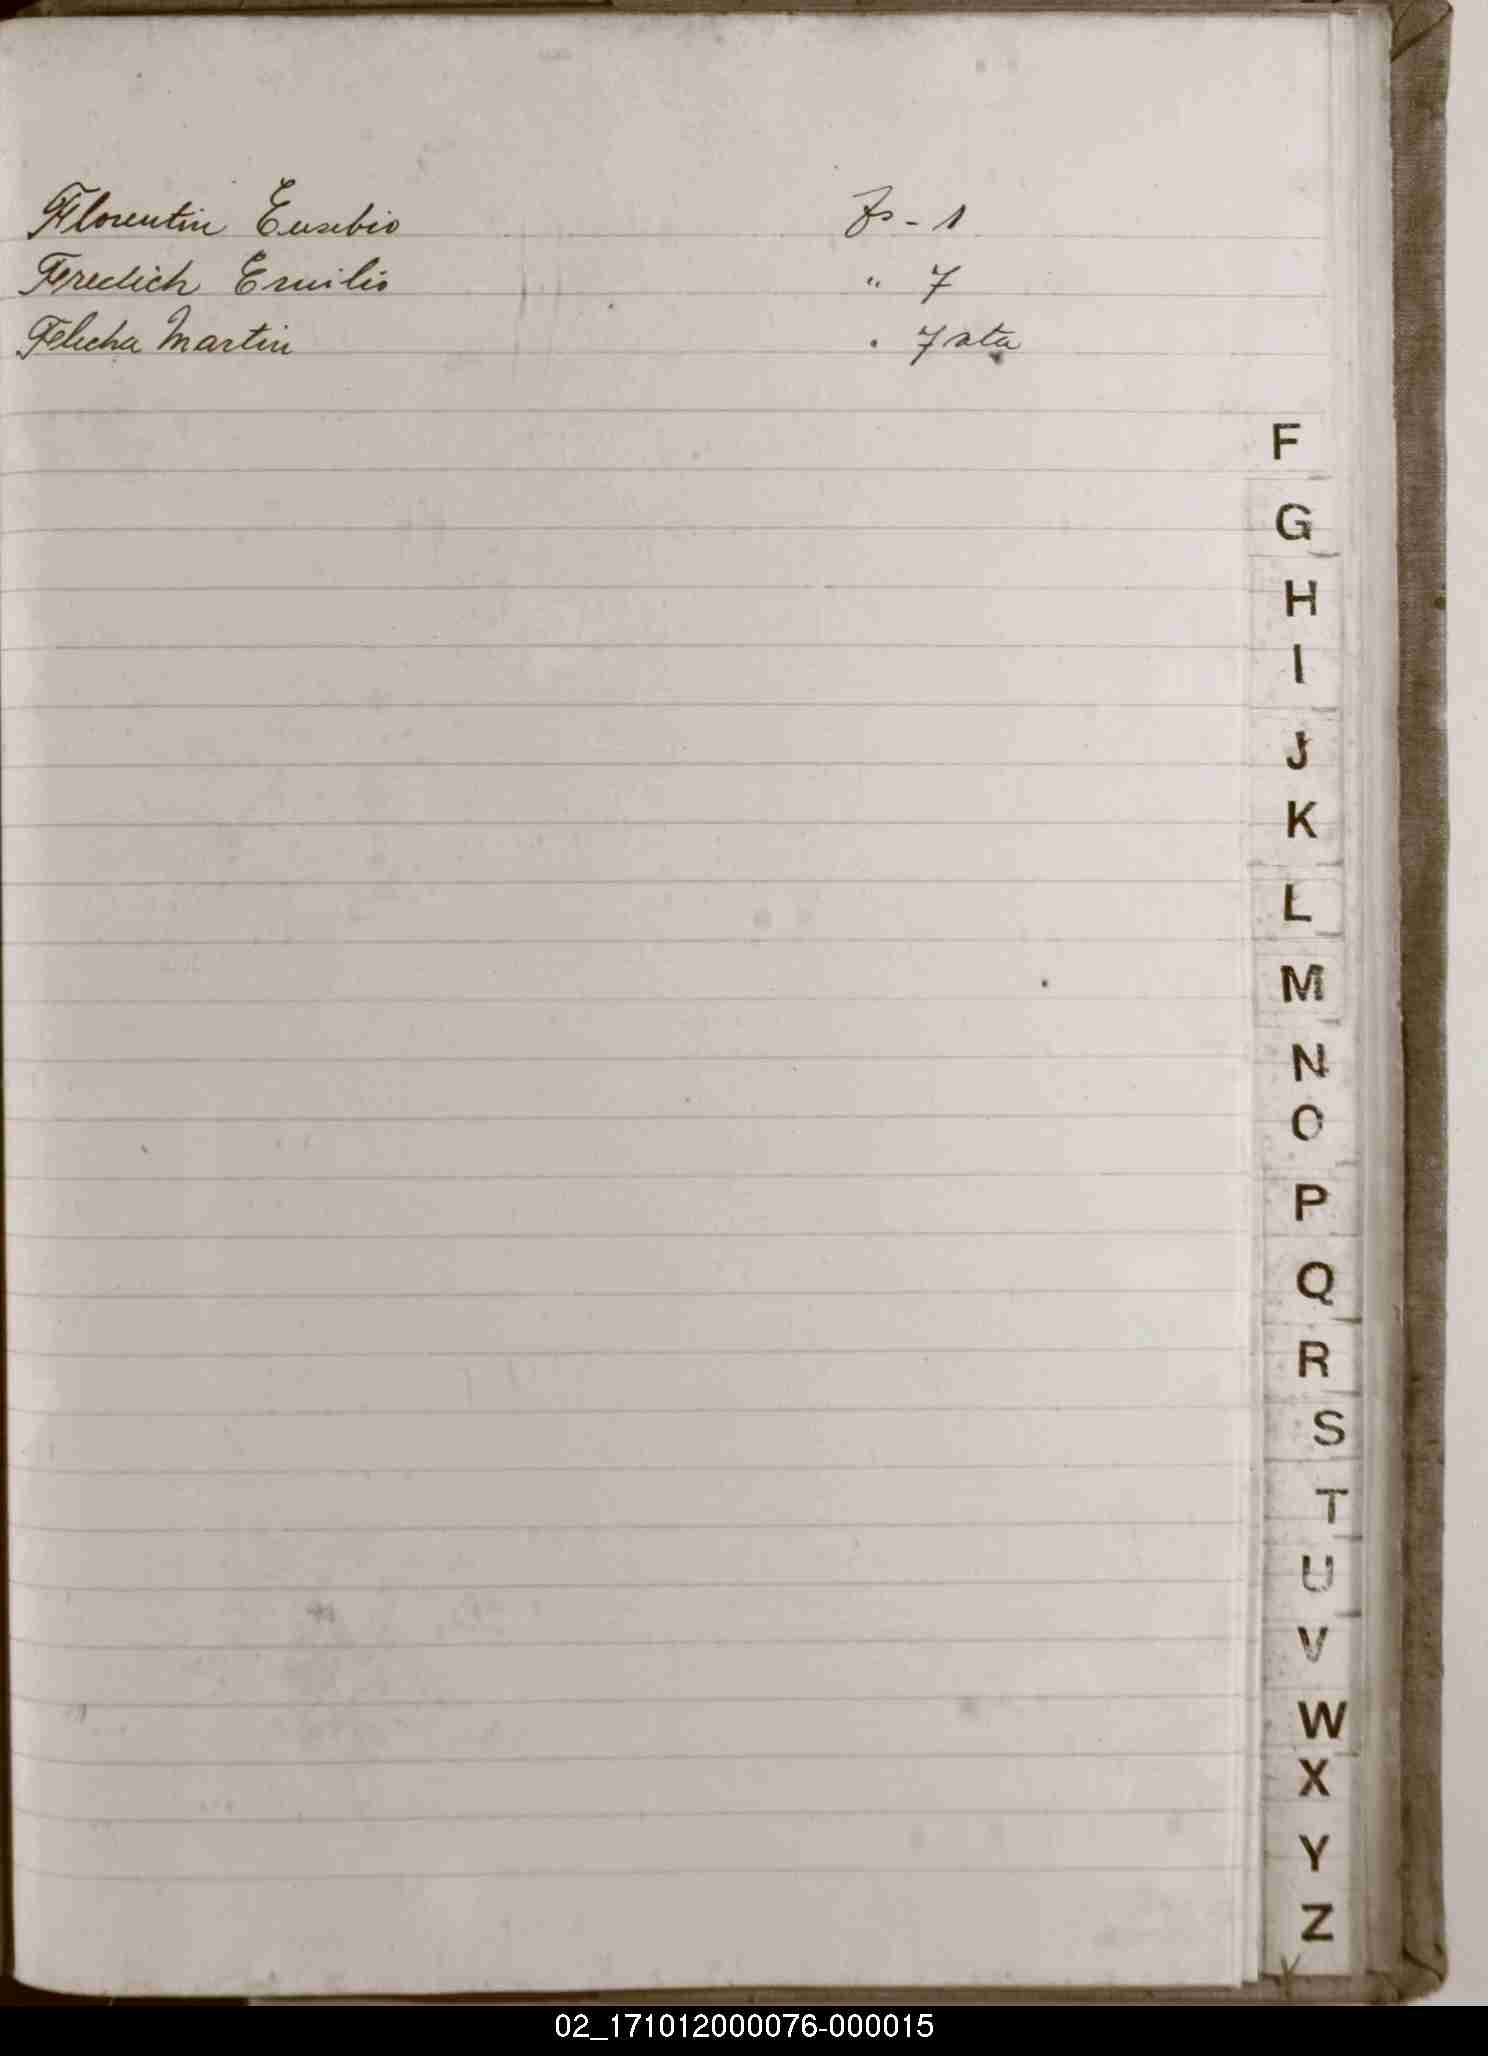 Florentin Eusebio fs - 1
Fredich Emilio " 7
Felicha Martin " 7 vta
F
G
H
I
J
K
L
M
N
O
P
Q
R
S
T
U
V
W
X
Y
Z
02_171012000076-000015